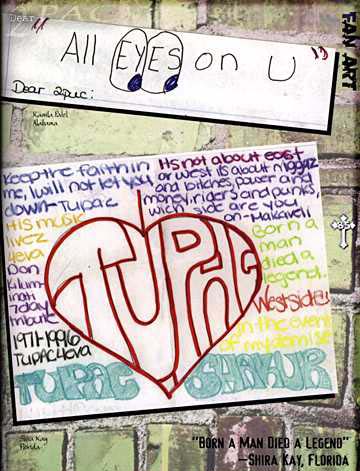 Dear
FAN ART
"All EYES on U"
Dear 2puc:
Alabama
Keep the faith in
me, I will not let you
down-Tupac
His music
livez
4eva
Don
Kilum-
inati
7day
1971-1996
TUPAC4eva
Its not about east
or west its about niggaz
and bitches, power and
money, riders and punks,
wich side are you
on-Makaveli
Born a
man
died a
legend.
Westside!
In the event
of my demise
TUPAC
TUPAC SHAKUR
85
Shira Kay
Florida
"BORN A MAN DIED A LEGEND"
—SHIRA KAY, FLORIDA